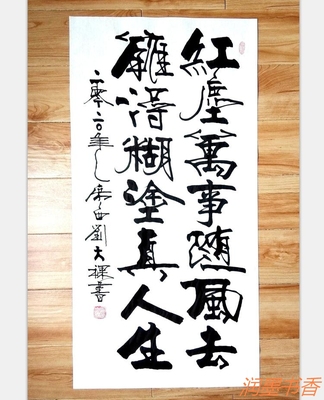 紅塵萬事隨風去
難得糊塗真人生
二零二0年之庚子劉大書
书香